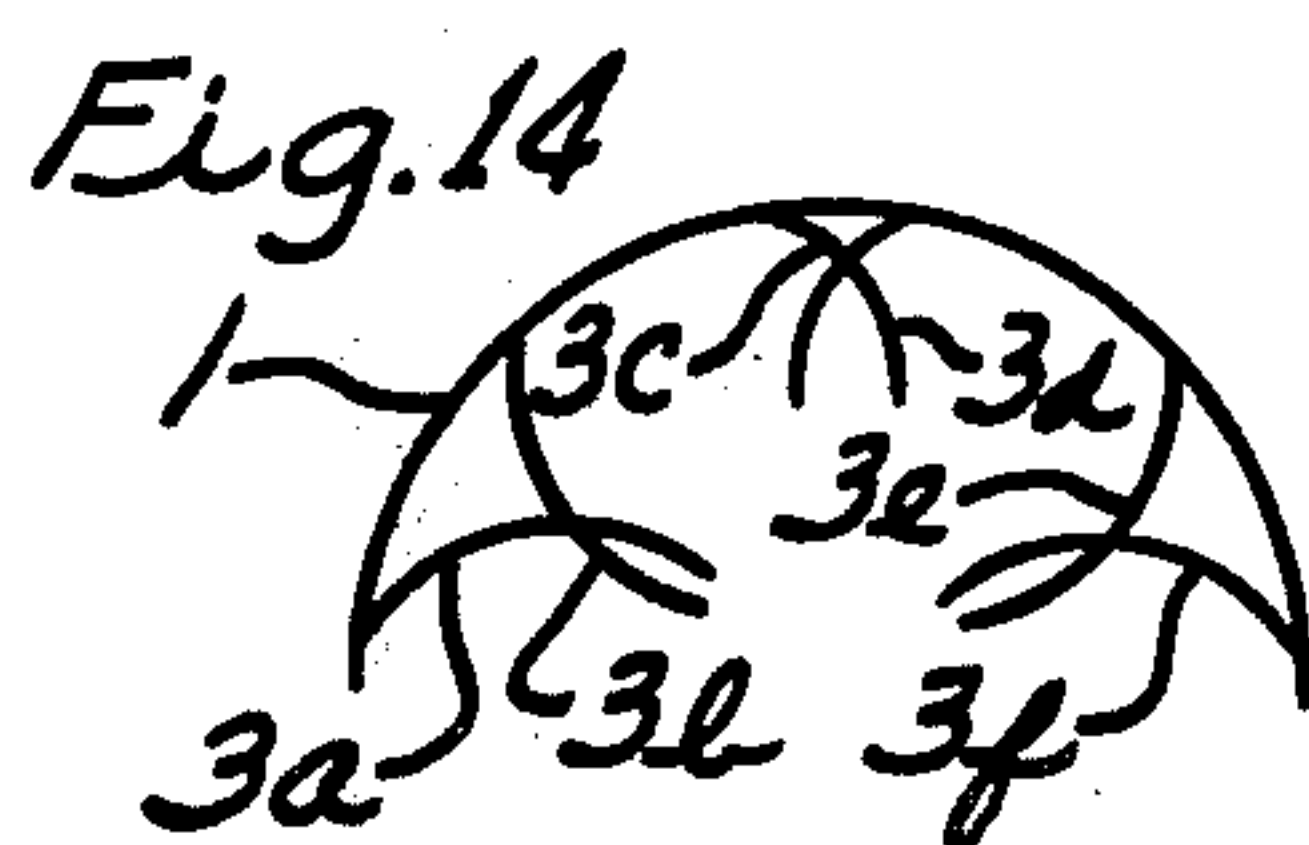 Fig. 14
1
3c
3d
3e
3a
3b
3f